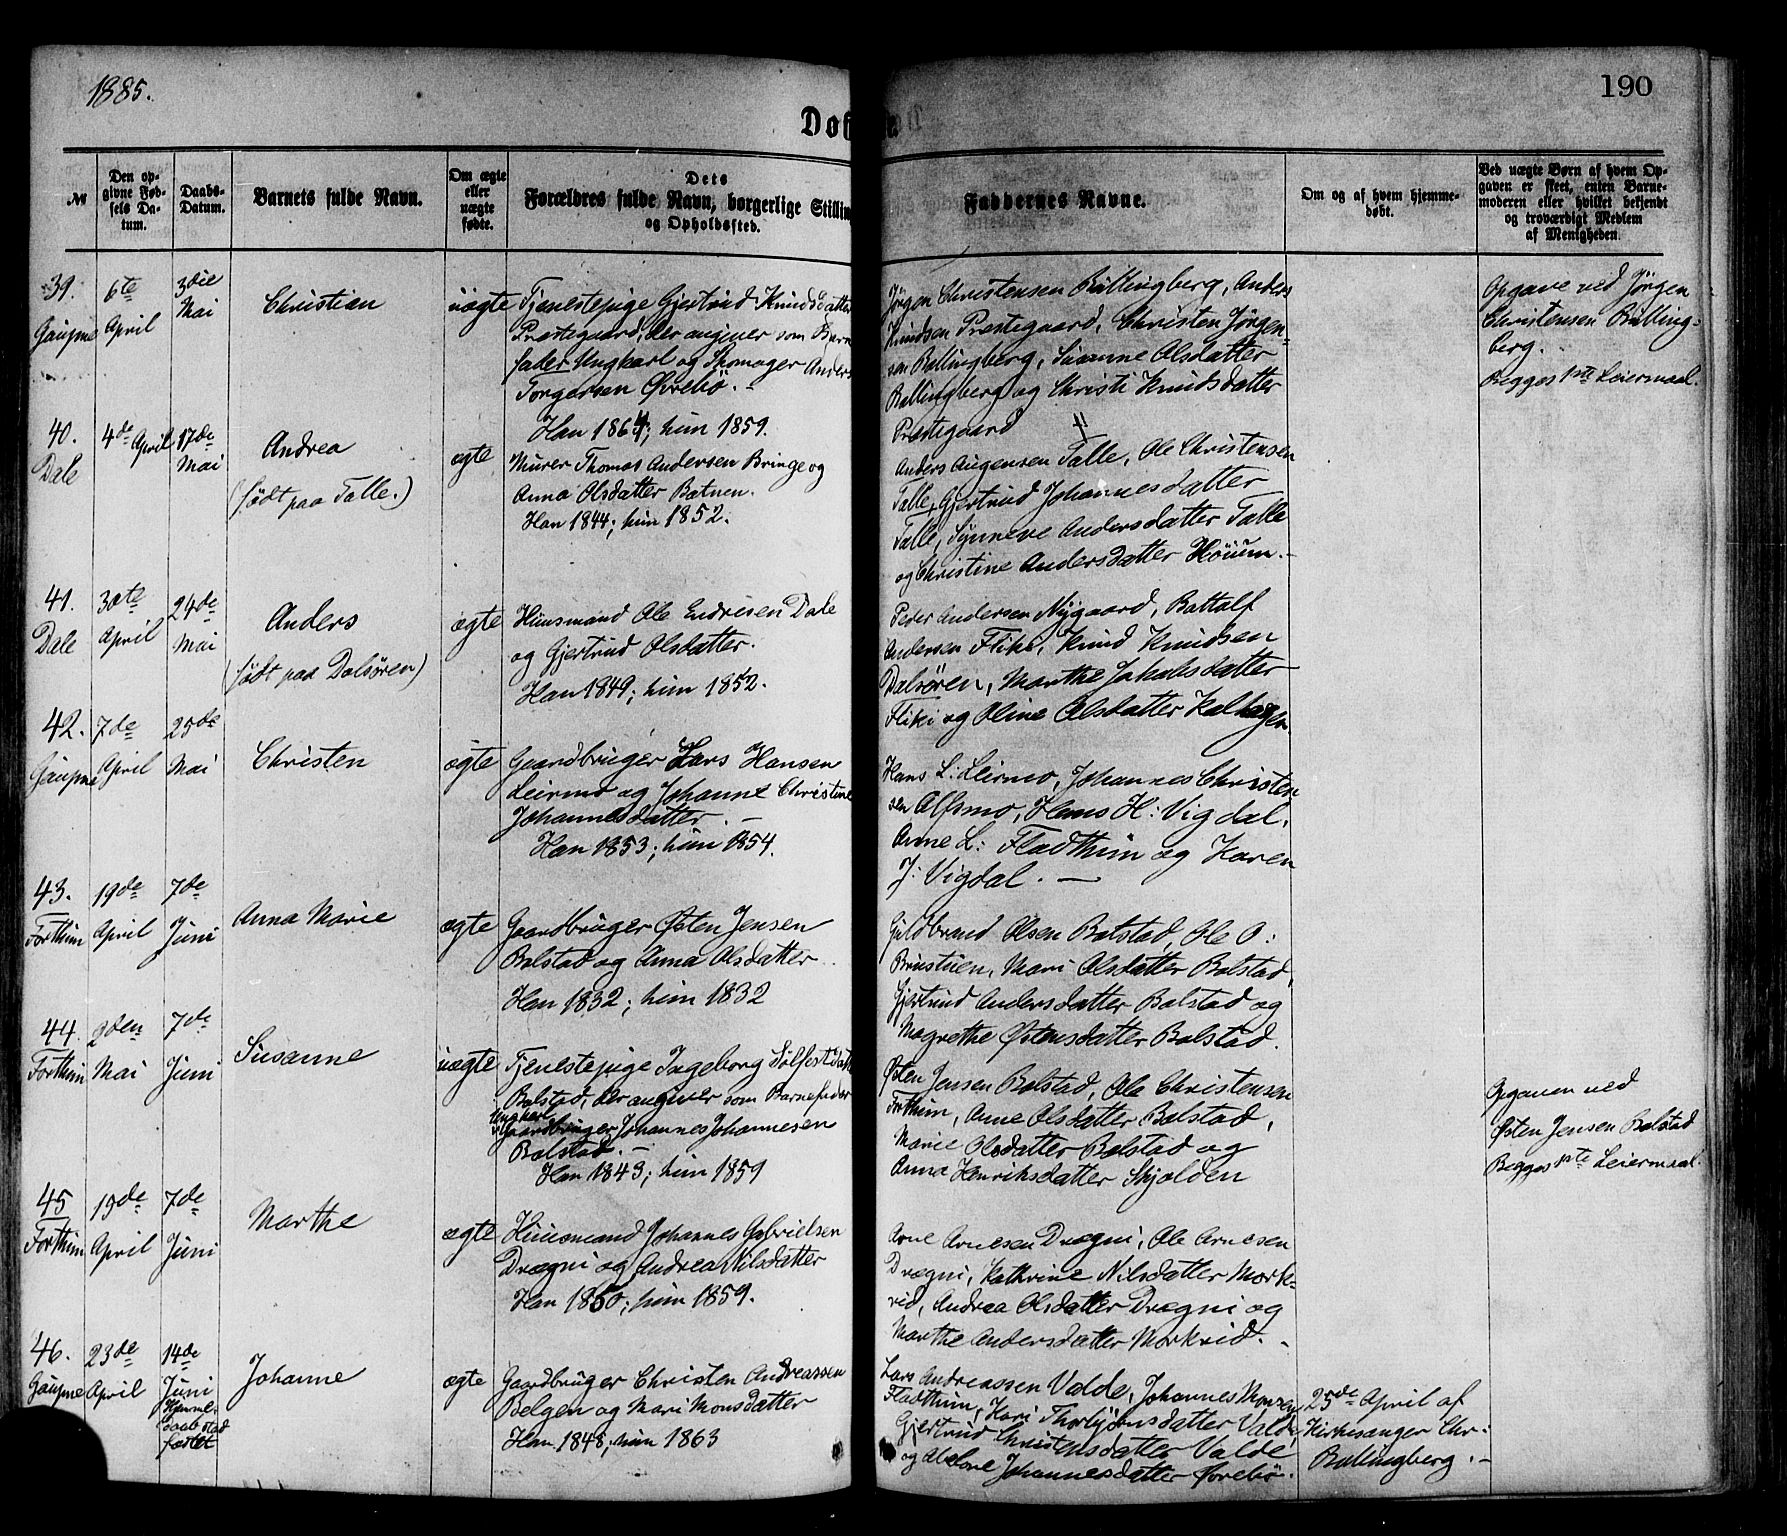 1885.
190
Døbte.
№
Den opgivne Fødsels Datum.
Daabs-Datum.
Barnets fulde Navn.
Om ægte eller uægte fødte.
Dets Forældres fulde Navn, borgerlige Stilling og Opholdssted.
Faddernes Navne.
Om og af hvem hjemmedøbt.
Ved uægte Børn af hvem Opgaven er skeet, enten Barnemoderen eller hvilket bekjendt og troværdigt Medlem af Menigheden.
39. 6te 3die
Gaupne April Mai
Christian
uægte
Tjenestepige Gjertrud Knudsdatter
Præstegaard, der angiver som Barne
fader Ungkarl og Skomager Anders
Torgersen Øvrebö. -
Han 1864; hun 1859.
Jörgen Christensen Bullingberg, Anders
Knudsen Præstegaard, Christen Jörgen-
sen Bullingberg, Susanne Olsdatter
Bullingberg og Christi Knudsdatter
Præstegaard
Opgave ved Jörgen
Christensen Bulling-
berg.
Begges 1ste Leiermaal.
40. 4de April 17de
Dale Mai
Andrea
(födt paa Talle.)
ægte
Murer Thomas Andersen Bringe og
Anna Olsdatter Batnen.
Han 1844; hun 1852.
Anders Augensen Talle, Ole Christensen
Talle, Gjertrud Johannesdatter
Talle, Synneve Andersdatter Talle
og Christine Andersdatter Höium. -
41. 30te 24de
Dale April Mai
Anders
(födt paa Dalsören)
ægte
Huusmand Ole Endresen Dale
og Gjertrud Olsdatter.
Han 1849; hun 1852.
Peder Andersen Nygaard, Battalf
Andersen Fliki, Knud Knudsen
Dalsören, Marthe Jakobsdatter
Fliki og Oline Olsdatter Kalhagen
42. 7de 25de
Gaupne April Mai
Christen
ægte
Gaardbruger Lars Hansen
Leirmo og Johanne Christine
Johannesdatter. -
Han 1853; hun 1854.
Hans L: Leirmo, Johannes Christen-
sen Alsmo, Hans H: Vigdal,
Anne L: Fladthun og Karen
J: Vigdal. -
43. 19de 7de
Forthun April Juni
Anna Marie
ægte
Gaardbruger Østen Jensen
Bolstad og Anna Olsdatter.
Han 1832; hun 1832
Guldbrand Olsen Bolstad, Ole O:
Brustuen, Mari Olsdatter Bolstad,
Gjertrud Andersdatter Bolstad og
Magrethe Østensdatter Bolstad.
44. 2den 7de
Forthun Mai Juni
Susanne
uægte
Tjenestepige Ingeborg Sølfestdatt
Bolstad, der angiver som Barnefader
Ungkarl
Gaardbruger Johannes Johannesen
Bolstad. -
Han 1843; hun 1859
Østen Jensen Bolstad, Ole Christensen
Forthun, Anne Olsdatter Bolstad,
Marie Olsdatter Bolstad og
Anna Henriksdatter Skjolden
Opgaven ved
Østen Jensen Bolstad
Begges 1ste Leiermaal.
45 19de 7de
Forthun April Juni
Marthe
ægte
Huusmand Johannes Gabrielsen
Drægni og Andrea Nilsdatter
Han 1850; hun 1859.
Arne Arnesen Drægni, Ole Arnesen
Drægni, Kathrine Nilsdatter Mork-
rid, Andrea Olsdatter Drægni og
Marthe Andersdatter Morkrid. -
46. 23de 14de
Gaupne April Juni
Hjemme-
daab stad
fæstet
Johanne
ægte
Gaardbruger Christen Andreassen
Bolgen og Mari Monsdatter
Han 1848, hun 1863
Lars Andreassen Valde, Johannes Monsen
Fladthun, Kari Thorbjönsdatter Valde,
Gjertrud Christensdatter Valde
og Johannesdatter Övrebö.
25de April af
Kirkesanger Chr:
Bullingberg. -